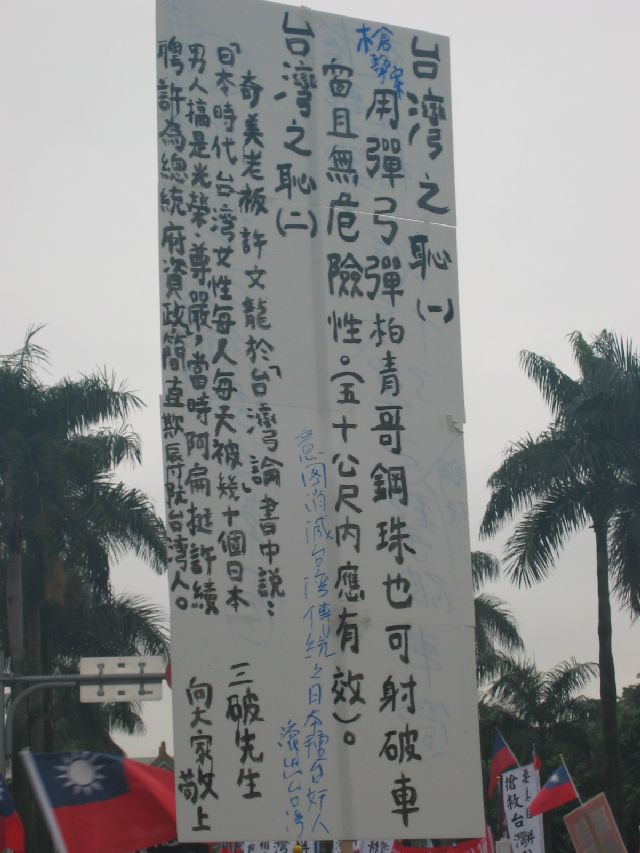 台灣之恥(一)
槍擊案
用彈弓彈柏青哥鋼珠也可射破車
窗且無危險性。(五十公尺內應有效)。
台灣之恥(二)
奇美老板許文龍於「台灣論」書中說：
「日本時代台灣女性每人每天被幾十個日本
男人搞是光榮、尊嚴，當時阿扁挺許續
聘許為總統府資政，簡直欺辱台湾人。
意图消滅台湾傳統之日本種自奸人
滾出台湾
三破先生
向大家敬上
搶救台灣